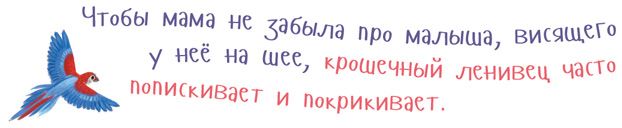 Чтобы мама не забыла про малыша, висящего
у неё на шее, крошечный ленивец часто
попискивает и покрикивает.